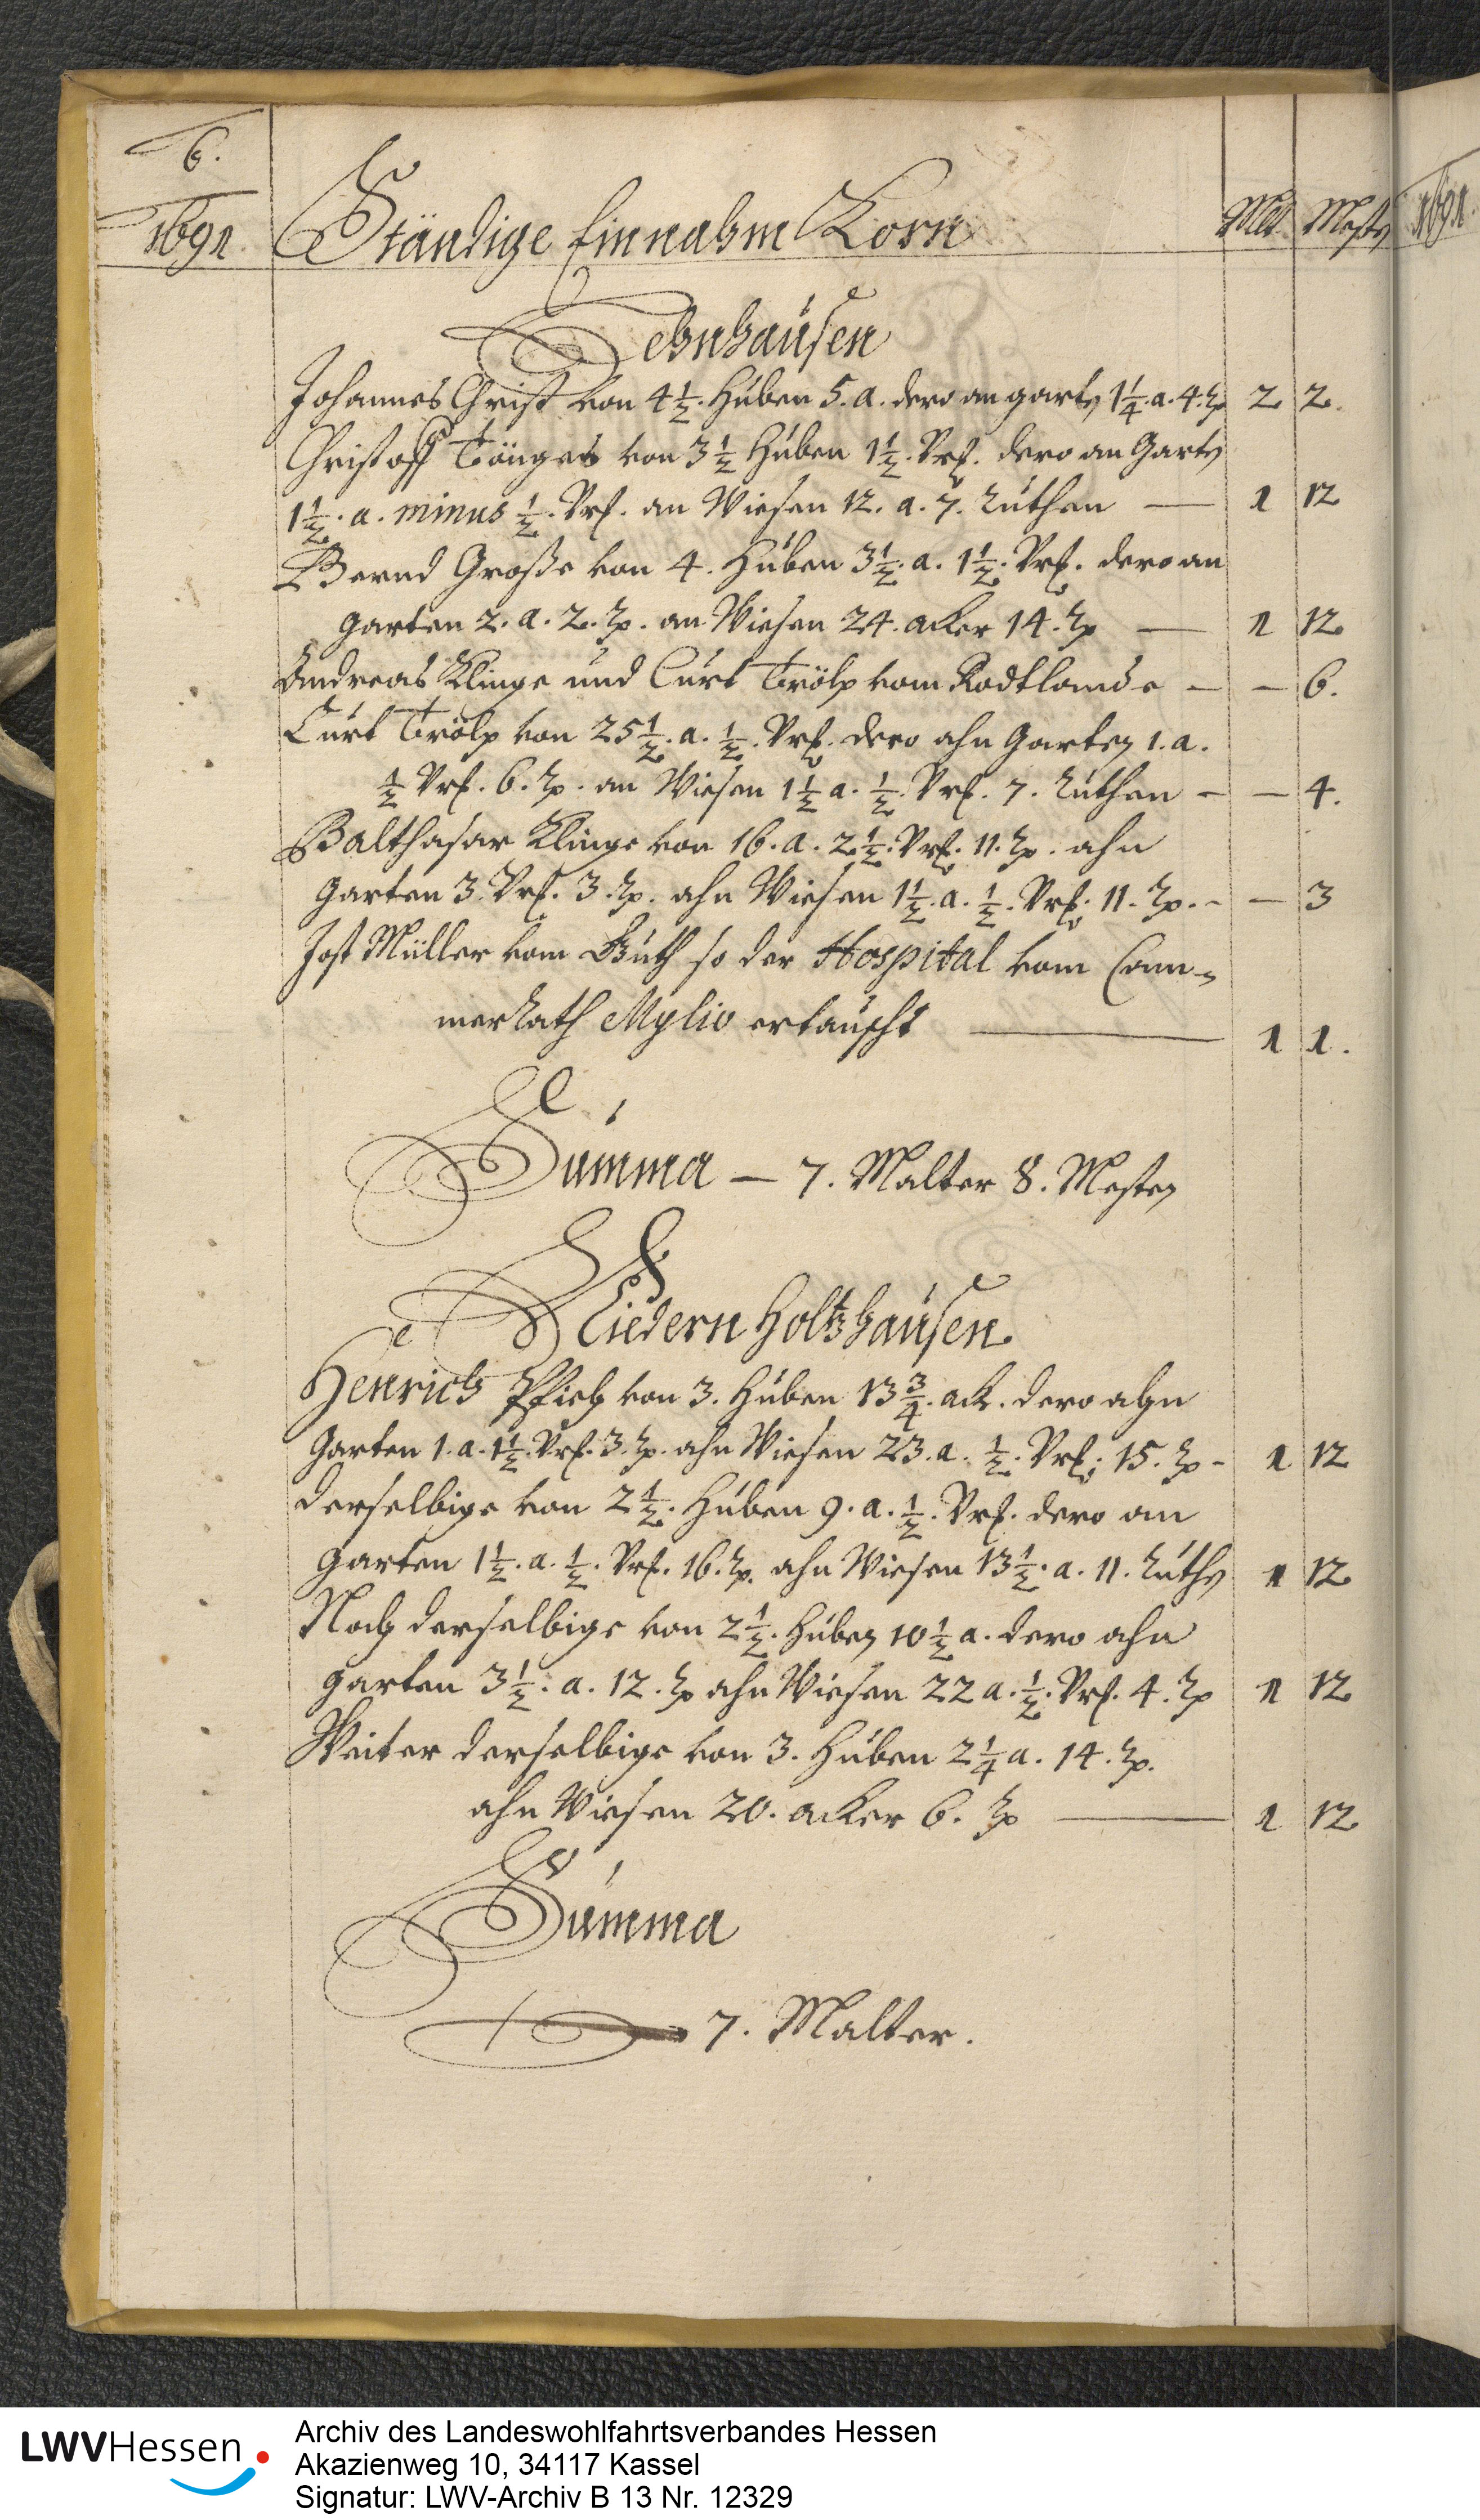 6.
1691.
Ständige Einnahm Korn
Mlt. Mest.
1691.
Lehnhausen
Johannes Christ von 4 1/2. Huben 5. a. dero an gartn 1 1/4. a. 4. rh 2 2.
Christoff Tönges von 3 1/2 Huben 1 1/2. Vrt. dero an Gartn
1 1/2. a. minus 1/2. Vrt. an Wiesen 12. a. 7. Ruthen — 1 12
Bernd Große von 4. Huben 3 1/2. a. 1 1/2. Vrt. dero an
garten 2. a. 2. rh. an Wiesen 24. acker 14. rh — 1 12
Andreas Klinge und Curt Trölp vom Rodtlande – – 6.
Curt Trölp von 25 1/2. a. 1/2. Vrt. dero ahn Garten 1. a.
1/2 Vrt. 6. rh. an Wiesen 1 1/2 a. 1/2. Vrt. 7. Ruthen – – 4.
Balthasar Klinge von 16. a. 2 1/2. Vrt. 11. rh. ahn
Garten 3. Vrt. 3. rh. ahn Wiesen 1 1/2. a. 1/2. Vrt. 11. rh. – – 3
Jost Müller vom Guth so der Hospital vom Cam-
merRath Mylio ertauscht — 1 1.
Summa — 7. Malter 8. Mesten
Niedern Holtzhausen.
Henrich von 3. Huben 13 3/4. ack. dero ahn
Garten 1. a. 1 1/2. Vrt. 3. rh. ahn Wiesen 23. a. 1/2. Vrt. 15. rh – 1 12
Derselbige von 2 1/2. Huben 9. a. 1/2. Vrt. dero an
Garten 1 1/2. a. 1/2. Vrt. 16. rh. ahn Wiesen 13 1/2. a. 11. Ruthn 1 12
Noch derselbige von 2 1/2. Huben 10 1/2 a. dero ahn
garten 3 1/2. a. 12. rh ahn Wiesen 22 a. 1/2. Vrt. 4. rh 1 12
Weiter derselbige von 3. Huben 2 1/4 a. 14. rh.
ahn Wiesen 20. acker 6. rh — 1 12
Summa
7. Malter.
LWVHessen
Archiv des Landeswohlfahrtsverbandes Hessen
Akazienweg 10, 34117 Kassel
Signatur: LWV-Archiv B 13 Nr. 12329